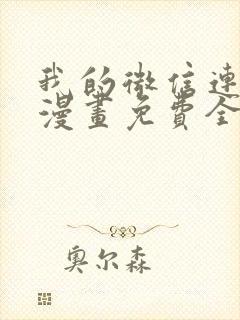 我的微信連
漫畫免費全
奧尔森